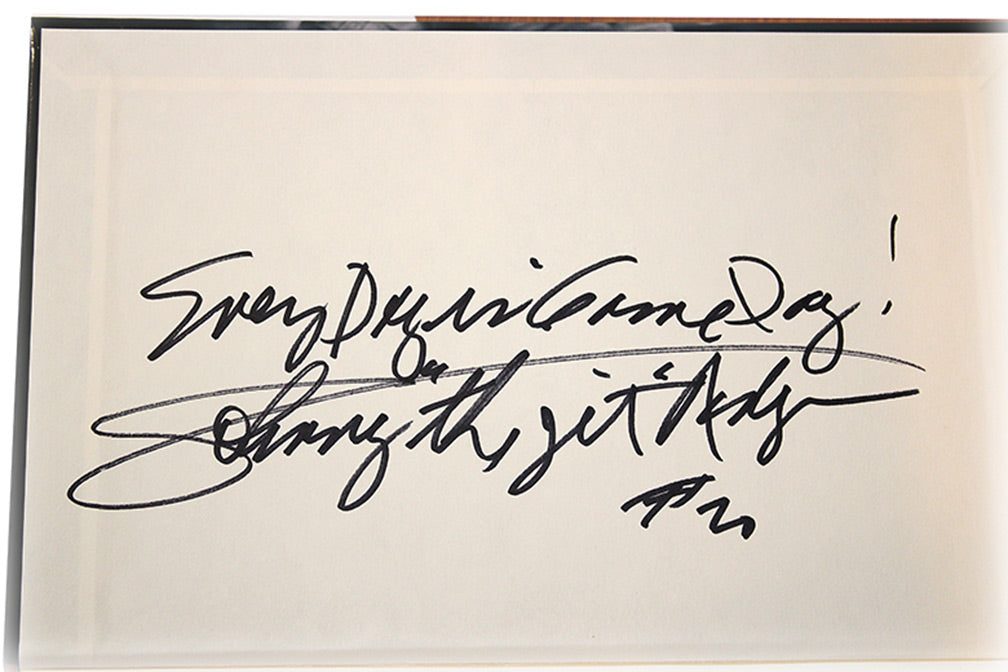 Every Day is Game Day!
Johnny "the jet" Rodgers
#20